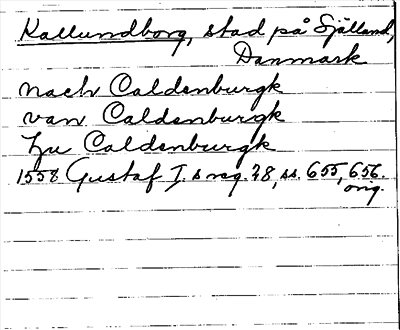 Kallundborg, stad på Själland,
Danmark
nach Caldenburgk
van Caldenburgk
Zu Caldenburgk
1558 Gustaf I. s reg. 28, ss. 655, 656.
orig.